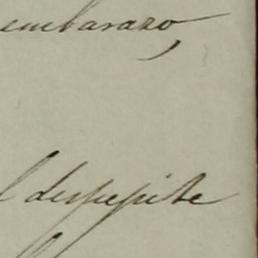 embarazo,
l despepite